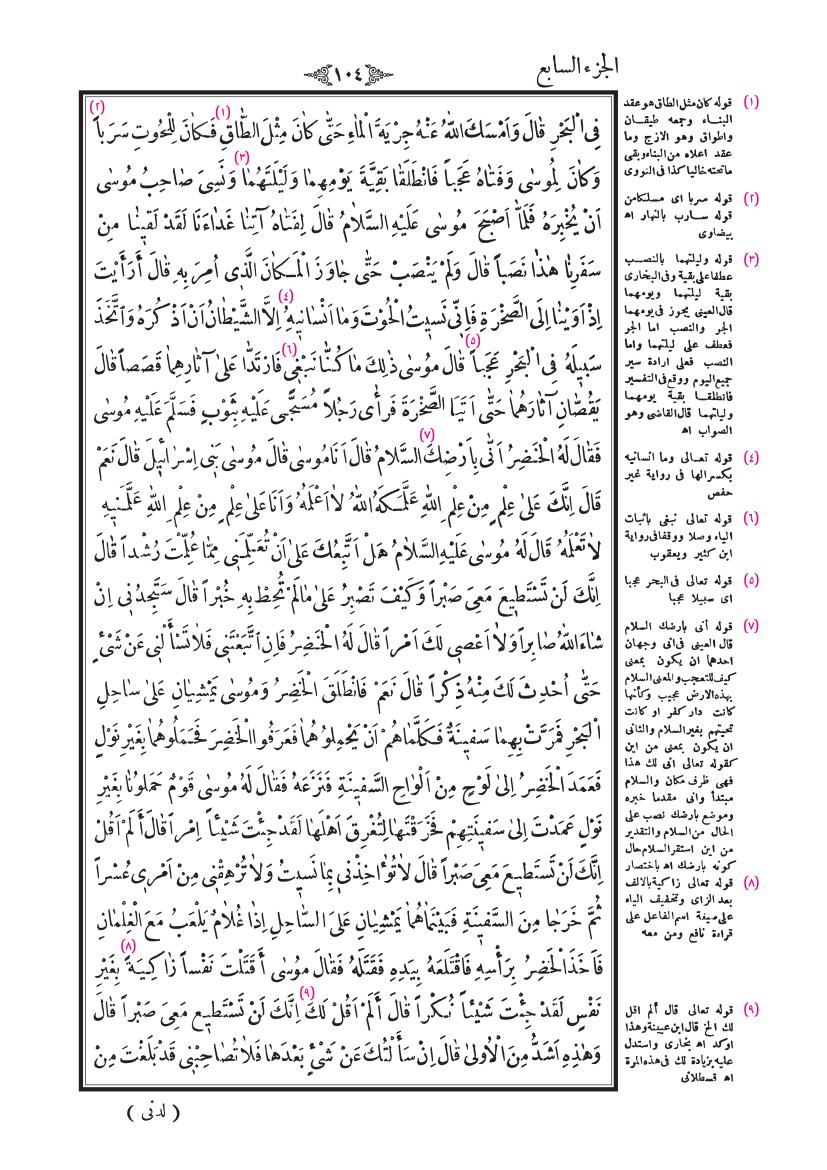 الجزء السابع
١٠٤
فِى الْبَحْرِ قَالَ وَاَمْسَكَ اللهُ عَنْهُ جِرْيَةَ الْمَاءِ حَتّٰى كَانَ مِثْلَ الطَّاقِ (١) فَكَانَ لِلْحُوتِ سَرَباً (٢)
وَكَانَ لِمُوسٰى وَفَتَاهُ عَجَباً فَانْطَلَقَا بَقِيَّةَ يَوْمِهِمَا وَلَيْلَتَهُمَا (٣) وَنَسِىَ صَاحِبُ مُوسٰى
اَنْ يُخْبِرَهُ فَلَمَّا اَصْبَحَ مُوسٰى عَلَيْهِ السَّلَامُ قَالَ لِفَتَاهُ آتِنَا غَدَاءَنَا لَقَدْ لَقِينَا مِنْ
سَفَرِنَا هٰذَا نَصَباً قَالَ وَلَمْ يَنْصَبْ حَتّٰى جَاوَزَ الْمَكَانَ الَّذِى اُمِرَ بِهِ قَالَ أَرَأَيْتَ
اِذْ اَوَيْنَا اِلَى الصَّخْرَةِ فَاِنِّى نَسِيتُ الْحُوتَ وَمَا اَنْسَانِيهِ (٤) اِلَّا الشَّيْطَانُ اَنْ اَذْكُرَهُ وَاتَّخَذَ
سَبِيلَهُ فِى الْبَحْرِ عَجَباً (٥) قَالَ مُوسٰى ذٰلِكَ مَا كُنَّا نَبْغِى (٦) فَارْتَدَّا عَلٰى آثَارِهِمَا قَصَصاً قَالَ
يَقُصَّانِ آثَارَهُمَا حَتّٰى اَتَيَا الصَّخْرَةَ فَرَأٰى رَجُلاً مُسَجًّى عَلَيْهِ بِثَوْبٍ فَسَلَّمَ عَلَيْهِ مُوسٰى
فَقَالَ لَهُ الْخَضِرُ اَنّٰى بِاَرْضِكَ (٧) السَّلَامُ قَالَ اَنَا مُوسٰى قَالَ مُوسٰى بَنِى اِسْرَائِيلَ قَالَ نَعَمْ
قَالَ اِنَّكَ عَلٰى عِلْمٍ مِنْ عِلْمِ اللهِ عَلَّمَكَهُ اللهُ لَا اَعْلَمُهُ وَاَنَا عَلٰى عِلْمٍ مِنْ عِلْمِ اللهِ عَلَّمَنِيهِ
لَا تَعْلَمُهُ قَالَ لَهُ مُوسٰى عَلَيْهِ السَّلَامُ هَلْ اَتَّبِعُكَ عَلٰى اَنْ تُعَلِّمَنِى مِمَّا عُلِّمْتَ رُشْداً قَالَ
اِنَّكَ لَنْ تَسْتَطِيعَ مَعِىَ صَبْراً وَكَيْفَ تَصْبِرُ عَلٰى مَا لَمْ تُحِطْ بِهِ خُبْراً قَالَ سَتَجِدُنِى اِنْ
شَاءَ اللهُ صَابِراً وَلَا اَعْصِى لَكَ اَمْراً قَالَ لَهُ الْخَضِرُ فَاِنِ اتَّبَعْتَنِى فَلَا تَسْأَلْنِى عَنْ شَىْءٍ
حَتّٰى اُحْدِثَ لَكَ مِنْهُ ذِكْراً قَالَ نَعَمْ فَانْطَلَقَ الْخَضِرُ وَمُوسٰى يَمْشِيَانِ عَلٰى سَاحِلِ
الْبَحْرِ فَمَرَّتْ بِهِمَا سَفِينَةٌ فَكَلَّمَاهُمْ اَنْ يَحْمِلُوهُمَا فَعَرَفُوا الْخَضِرَ فَحَمَلُوهُمَا بِغَيْرِ نَوْلٍ
فَعَمَدَ الْخَضِرُ اِلٰى لَوْحٍ مِنْ اَلْوَاحِ السَّفِينَةِ فَنَزَعَهُ فَقَالَ لَهُ مُوسٰى قَوْمٌ حَمَلُونَا بِغَيْرِ
نَوْلٍ عَمَدْتَ اِلٰى سَفِينَتِهِمْ فَخَرَقْتَهَا لِتُغْرِقَ اَهْلَهَا لَقَدْ جِئْتَ شَيْئاً اِمْراً قَالَ أَلَمْ اَقُلْ
اِنَّكَ لَنْ تَسْتَطِيعَ مَعِىَ صَبْراً قَالَ لَا تُؤَاخِذْنِى بِمَا نَسِيتُ وَلَا تُرْهِقْنِى مِنْ اَمْرِى عُسْراً
ثُمَّ خَرَجَا مِنَ السَّفِينَةِ فَبَيْنَمَا هُمَا يَمْشِيَانِ عَلَى السَّاحِلِ اِذَا غُلَامٌ يَلْعَبُ مَعَ الْغِلْمَانِ
فَاَخَذَ الْخَضِرُ بِرَأْسِهِ فَاقْتَلَعَهُ بِيَدِهِ فَقَتَلَهُ فَقَالَ مُوسٰى أَقَتَلْتَ نَفْساً زَاكِيَةً (٨) بِغَيْرِ
نَفْسٍ لَقَدْ جِئْتَ شَيْئاً نُكْراً قَالَ أَلَمْ اَقُلْ لَكَ (٩) اِنَّكَ لَنْ تَسْتَطِيعَ مَعِىَ صَبْراً قَالَ
وَهٰذِهِ اَشَدُّ مِنَ الْاُولٰى قَالَ اِنْ سَأَلْتُكَ عَنْ شَىْءٍ بَعْدَهَا فَلَا تُصَاحِبْنِى قَدْ بَلَغْتَ مِنْ
( لدنى )
(١) قوله كان مثل الطاق هو عقد
البناء وجمعه طيقان
واطواق وهو الازج وما
عقد اعلاه من البناء وبقى
ماتحته خاليا كذا فى النووى
(٢) قوله سربا اى مسلكا من
قوله سارب بالنهار اه
بيضاوى
(٣) قوله وليلتهما بالنصب
عطفا على بقية وفى البخارى
بقية ليلتهما ويومهما
قال العينى يجوز فى يومهما
الجر والنصب اما الجر
فعطف على ليلتهما واما
النصب فعلى ارادة سير
جميع اليوم ووقع فى التفسير
فانطلقا بقية يومهما
وليلتهما قال القاضى وهو
الصواب اه
(٤) قوله تعالى وما انسانيه
بكسر الها فى رواية غير
حفص
(٦) قوله تعالى نبغى باثبات
الياء وصلا ووقفا فى رواية
ابن كثير ويعقوب
(٥) قوله تعالى فى البحر عجبا
اى سبيلا عجبا
(٧) قوله أنى بارضك السلام
قال العينى فى انى وجهان
احدهما ان يكون بمعنى
كيف للتعجب والمعنى السلام
بهذه الارض عجيب وكأنها
كانت دار كفر او كانت
تحيتهم بغير السلام والثانى
ان يكون بمعنى من اين
كقوله تعالى انى لك هذا
فهى ظرف مكان والسلام
مبتدأ وانى مقدما خبره
وموضع بارضك نصب على
الحال من السلام والتقدير
من اين استقر السلام حال
كونه بارضك اه باختصار
(٨) قوله تعالى زاكية بالالف
بعد الزاى وتخفيف الياء
على صيغة اسم الفاعل على
قراءة نافع ومن معه
(٩) قوله تعالى قال ألم اقل
لك الخ قال ابن عيينة وهذا
اوكد اه بخارى واستدل
عليه بزيادة لك فى هذه المرة
اه قسطلانى